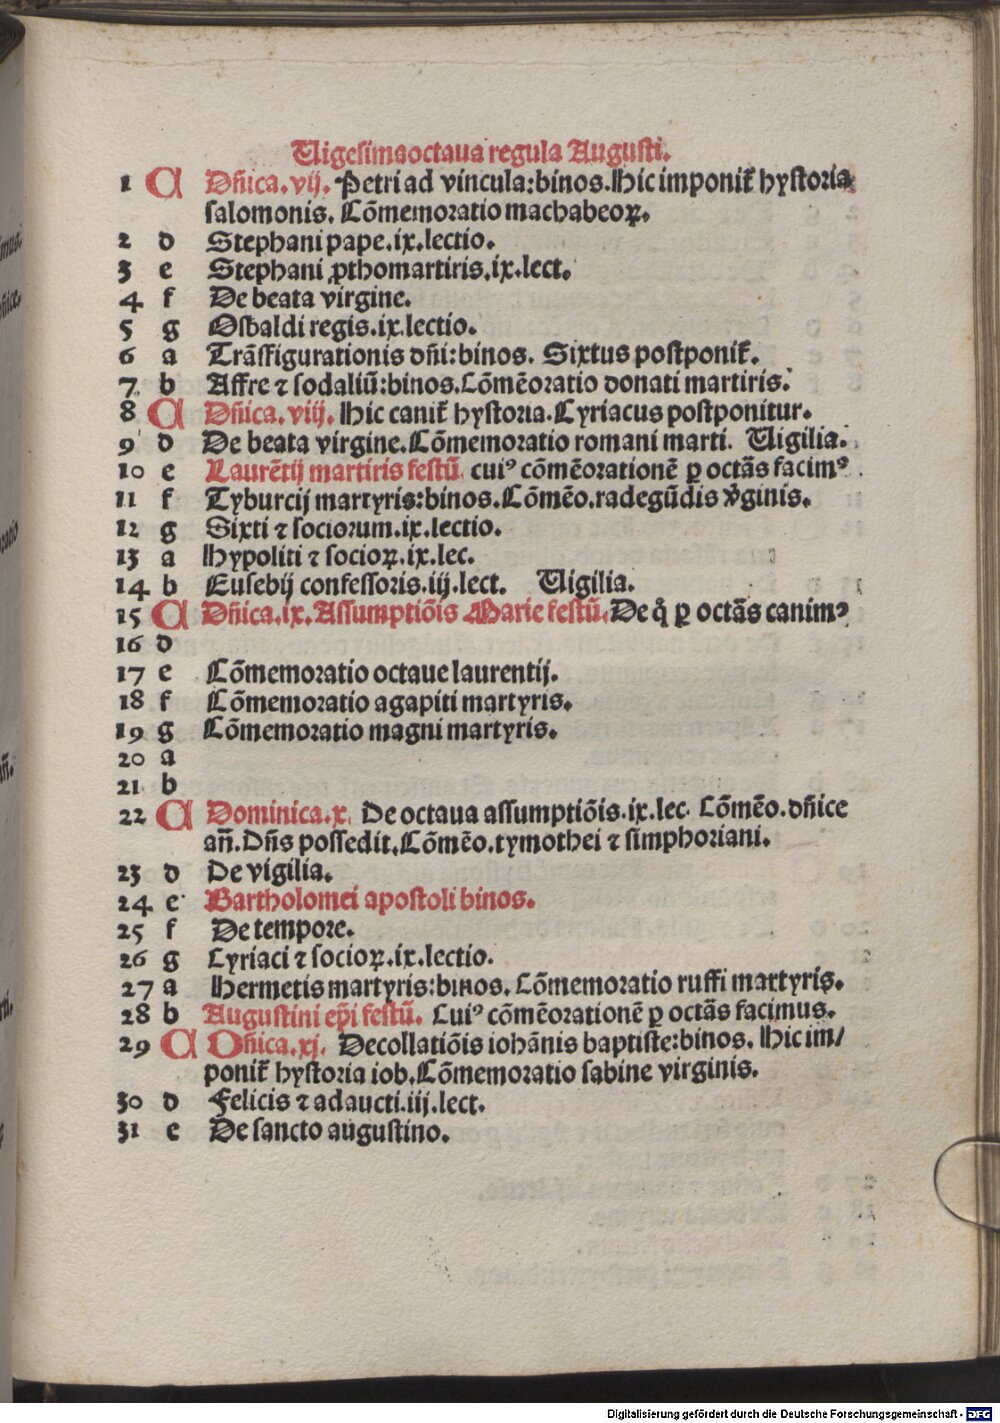 Uigesimaoctaua regula Augusti.
1 C Dn̄ica.vij. Petri ad vincula:binos.Hic imponit᷑ hystoria
salomonis. Cōmemoratio machabeoꝝ.
2 d Stephani pape.ix.lectio.
3 e Stephani ꝓthomartiris.ix.lect.
4 f De beata virgine.
5 g Osbaldi regis.ix.lectio.
6 a Trāsfigurationis dn̄i:binos. Sixtus postponit᷑.
7 b Affre ⁊ sodaliū:binos.Cōmēoratio donati martiris.
8 C Dn̄ica.viij. Hic canit᷑ hystoria.Cyriacus postponitur.
9 d De beata virgine.Cōmemoratio romani marti. Uigilia.
10 e Laurētij martiris festū. cuiꝰ cōmēorationē ꝑ octās facimꝰ.
11 f Tyburcij martyris:binos.Cōmēo.radegūdis v̓ginis.
12 g Sixti ⁊ sociorum.ix.lectio.
13 a Hypoliti ⁊ socioꝝ.ix.lec.
14 b Eusebij confessoris.iij.lect. Uigilia.
15 C Dn̄ica.ix.Assumptiōis Marie festū.De q̊ ꝑ octās canimꝰ
16 d
17 e Cōmemoratio octaue laurentij.
18 f Cōmemoratio agapiti martyris.
19 g Cōmemoratio magni martyris.
20 a
21 b
22 C Dominica.x. De octaua assumptiōis.ix.lec. Cōmēo.dn̄ice
an̄.Dn̄s possedit.Cōmēo.tymothei ⁊ simphoriani.
23 d De vigilia.
24 e Bartholomei apostoli binos.
25 f De tempore.
26 g Cyriaci ⁊ socioꝝ.ix.lectio.
27 a Hermetis martyris:binos. Cōmemoratio ruffi martyris.
28 b Augustini ep̄i festū. Cuiꝰ cōmēorationē ꝑ octās facimus.
29 C Dn̄ica.xj. Decollatiōis iohānis baptiste:binos. Hic im/
ponit᷑ hystoria iob.Cōmemoratio sabine virginis.
30 d Felicis ⁊ adaucti.iij.lect.
31 e De sancto augustino.
Digitalisierung gefördert durch die Deutsche Forschungsgemeinschaft - DFG